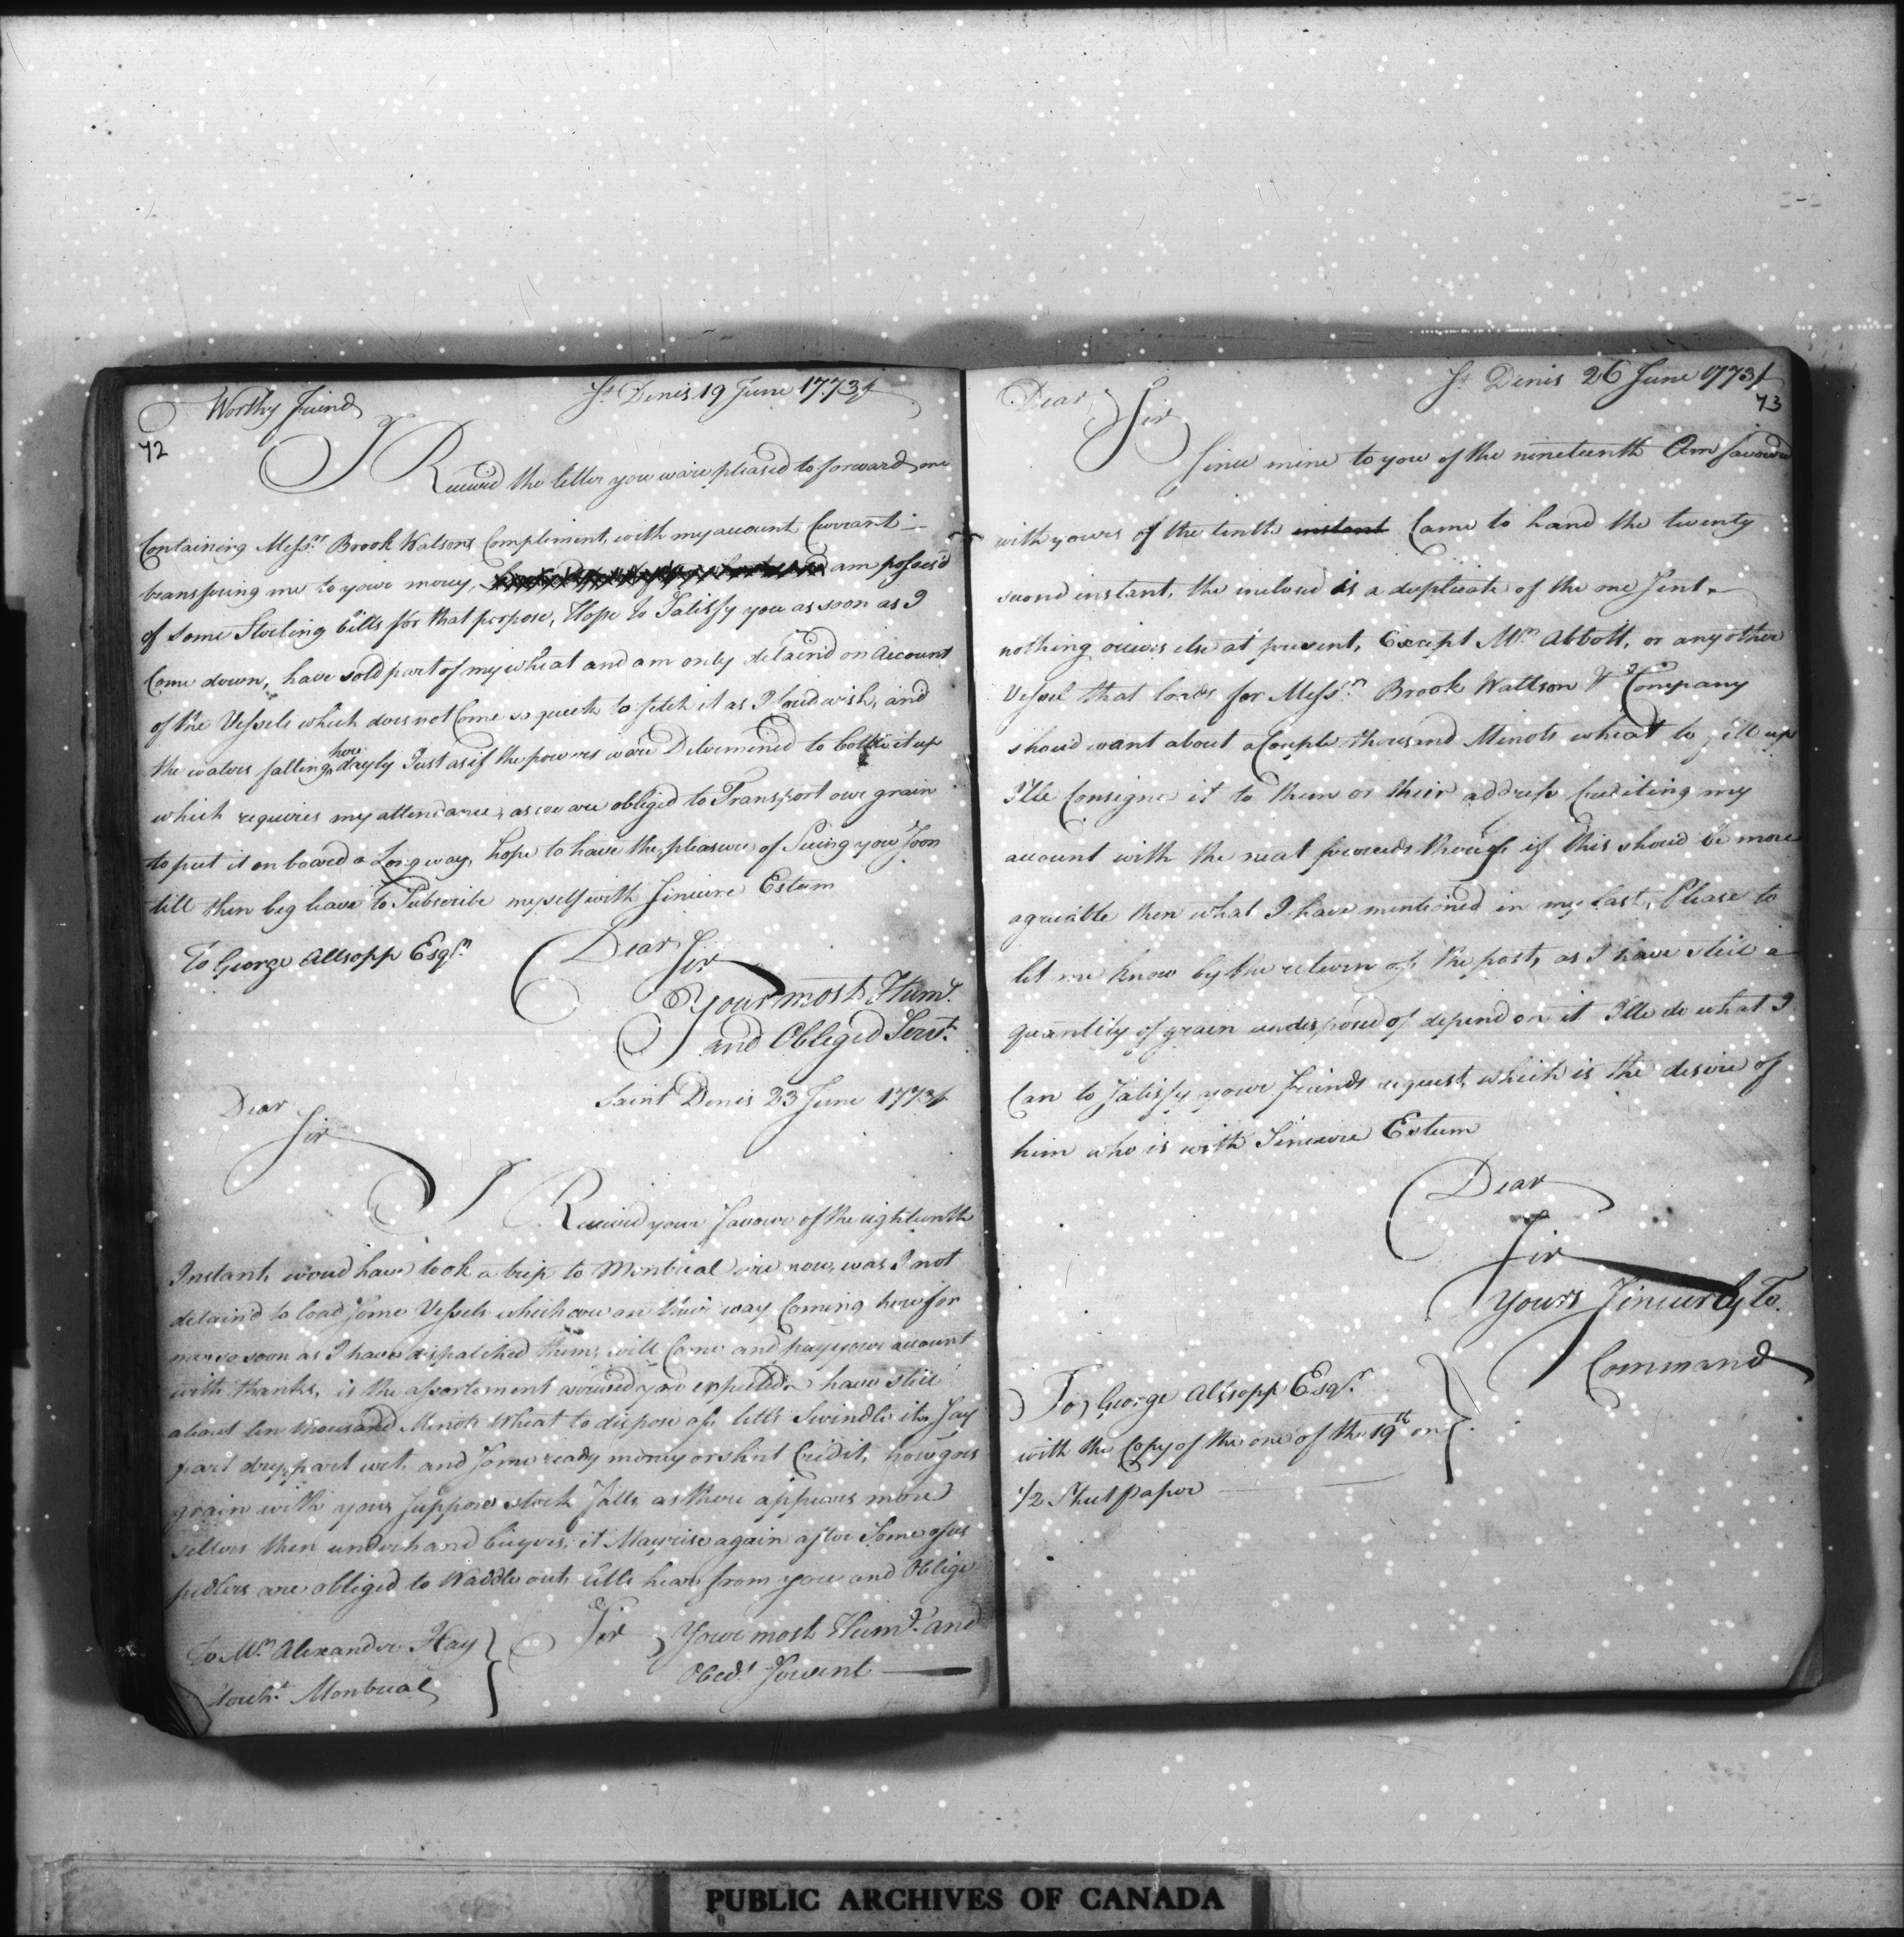 St Denis 19 June 1773
Worthy friend
72
I Received the letter you ware pleased to forward me
Containing Messrs Brook Watsons Compliment, with my account Currant
transfering me to youre mercy, am posses'd
of some Sterling bills for that porpose, Hope to Satisfy you as soon as I
Come down, have sold part of my wheat and am only detain'd on Account
of the Vessels which does not Come so queek to fetch it as I coud wish, and
the waters falling here dayly Just as if the powers ware Determined to it up
which requires my attendance, as we are obliged to Transport our grain
to put it on board a Long way, hope to have the pleasure of Seeing you Soon
till then beg leave to Subscribe myself with Sinceire Esteem
To George Allsopp Esqr.
Dear Sir
Your most Humt.
and Obliged Servt.
Saint Denis 23 June 1773
Dear
Sir
I Received your favour of the eighteenth
Instant, woud have took a trip to Montreal ere now, was I not
detain'd to load Some Vessels which are on their way Coming here for
me so soon as I have dispatched them, will Come and pay your account
with thanks, is the assortement arrived you expected have still
about ten thousand Minots Wheat to dispose of, letts Swindle it, Say
part dry, part wet, and Some ready money or short Credit, how goes
grain with you, Suppose stock falls as there appears more
sellers then underhand buyers, it May rise again after Some of us
pedlers are obliged to Waddle out, letts hear from you and Oblige
Sir Youre most Humt. and
Obedt. Servent
To Mr. Alexander Hay
Montreal
St Denis 26 June 1773
73
Dear Sir
Since mine to you of the nineteenth Am favoured
with yours of the tenth instant Came to hand the twenty
second instant, the inclosed is a duplicate of the one Sent,
nothing ocurs else at present, Except Mr. Abbott, or any other
Vessel that loads for Messrs Brook Wattson & Company
shoud want about a Couple thousand Minots wheat to fill up
I'lle Consigne it to them or their address Crediting my
account with the neat proceeds though if this shoud be more
agreable then what I have mentioned in my Last, Please to
let me know by the return of the post, as I have still a
quantity of grain undisposed of depend on it I'lle do what I
Can to Satisfy your friends request, which is the desire of
him who is with Sinceire Esteem
Dear
Sir
Yours Sincerely To
Command
To George Allsopp Esqr.
with the Copy of the one of the 19th on
1/2 Sheet paper
PUBLIC ARCHIVES OF CANADA